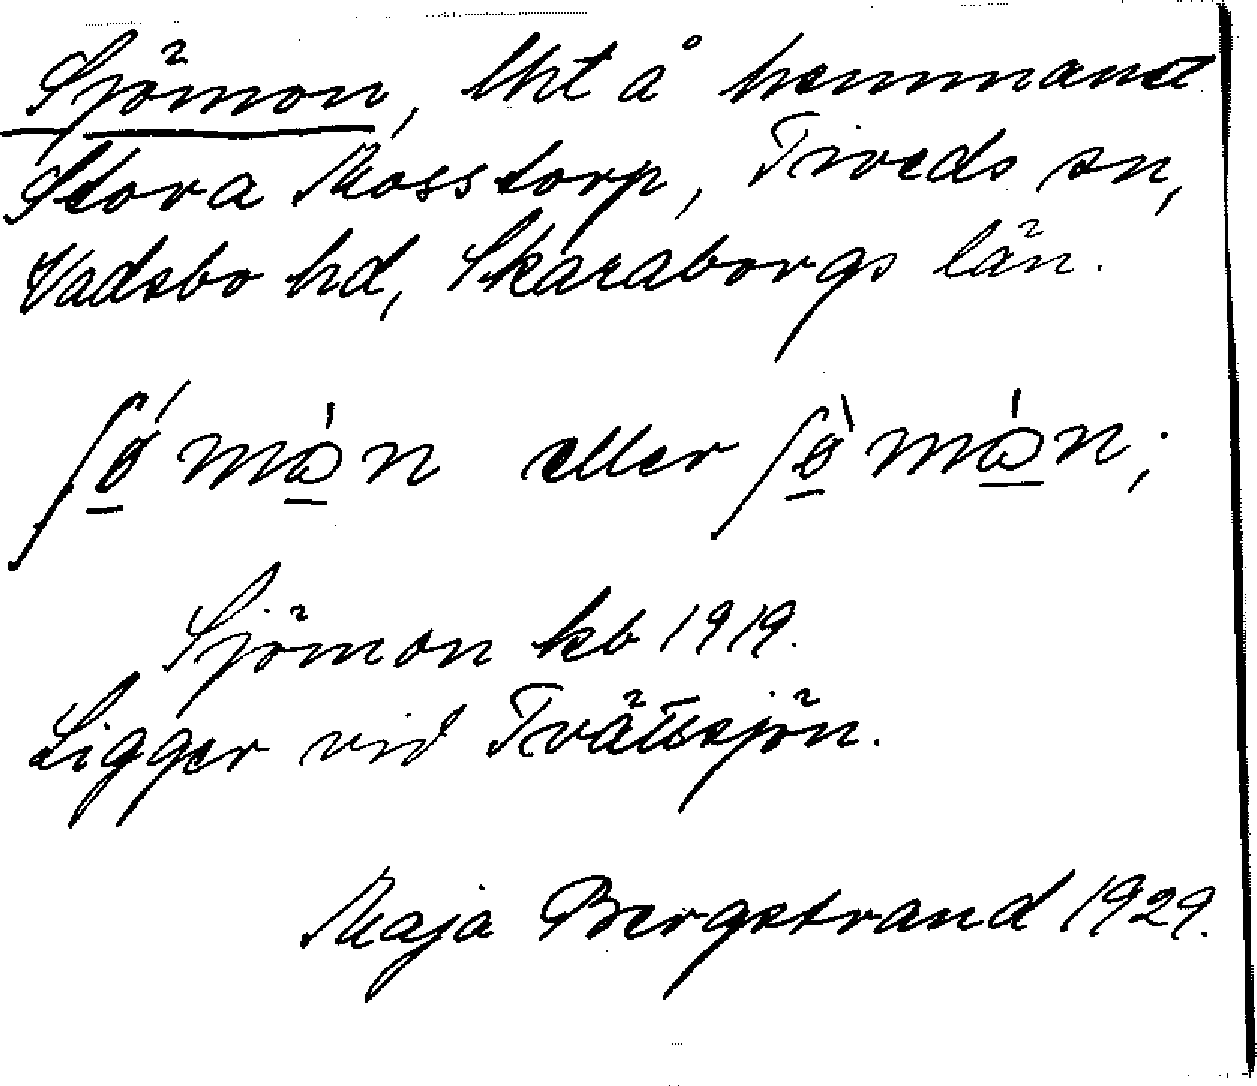 Sjömon, lht å hemmanet
Stora Mosstorp, Tiveds sn,
Vadsbo hd, Skaraborgs län.
eller
Sjömon kb 1919.
Ligger vid Tvättsjön.
Maja Bergstrand 1929.